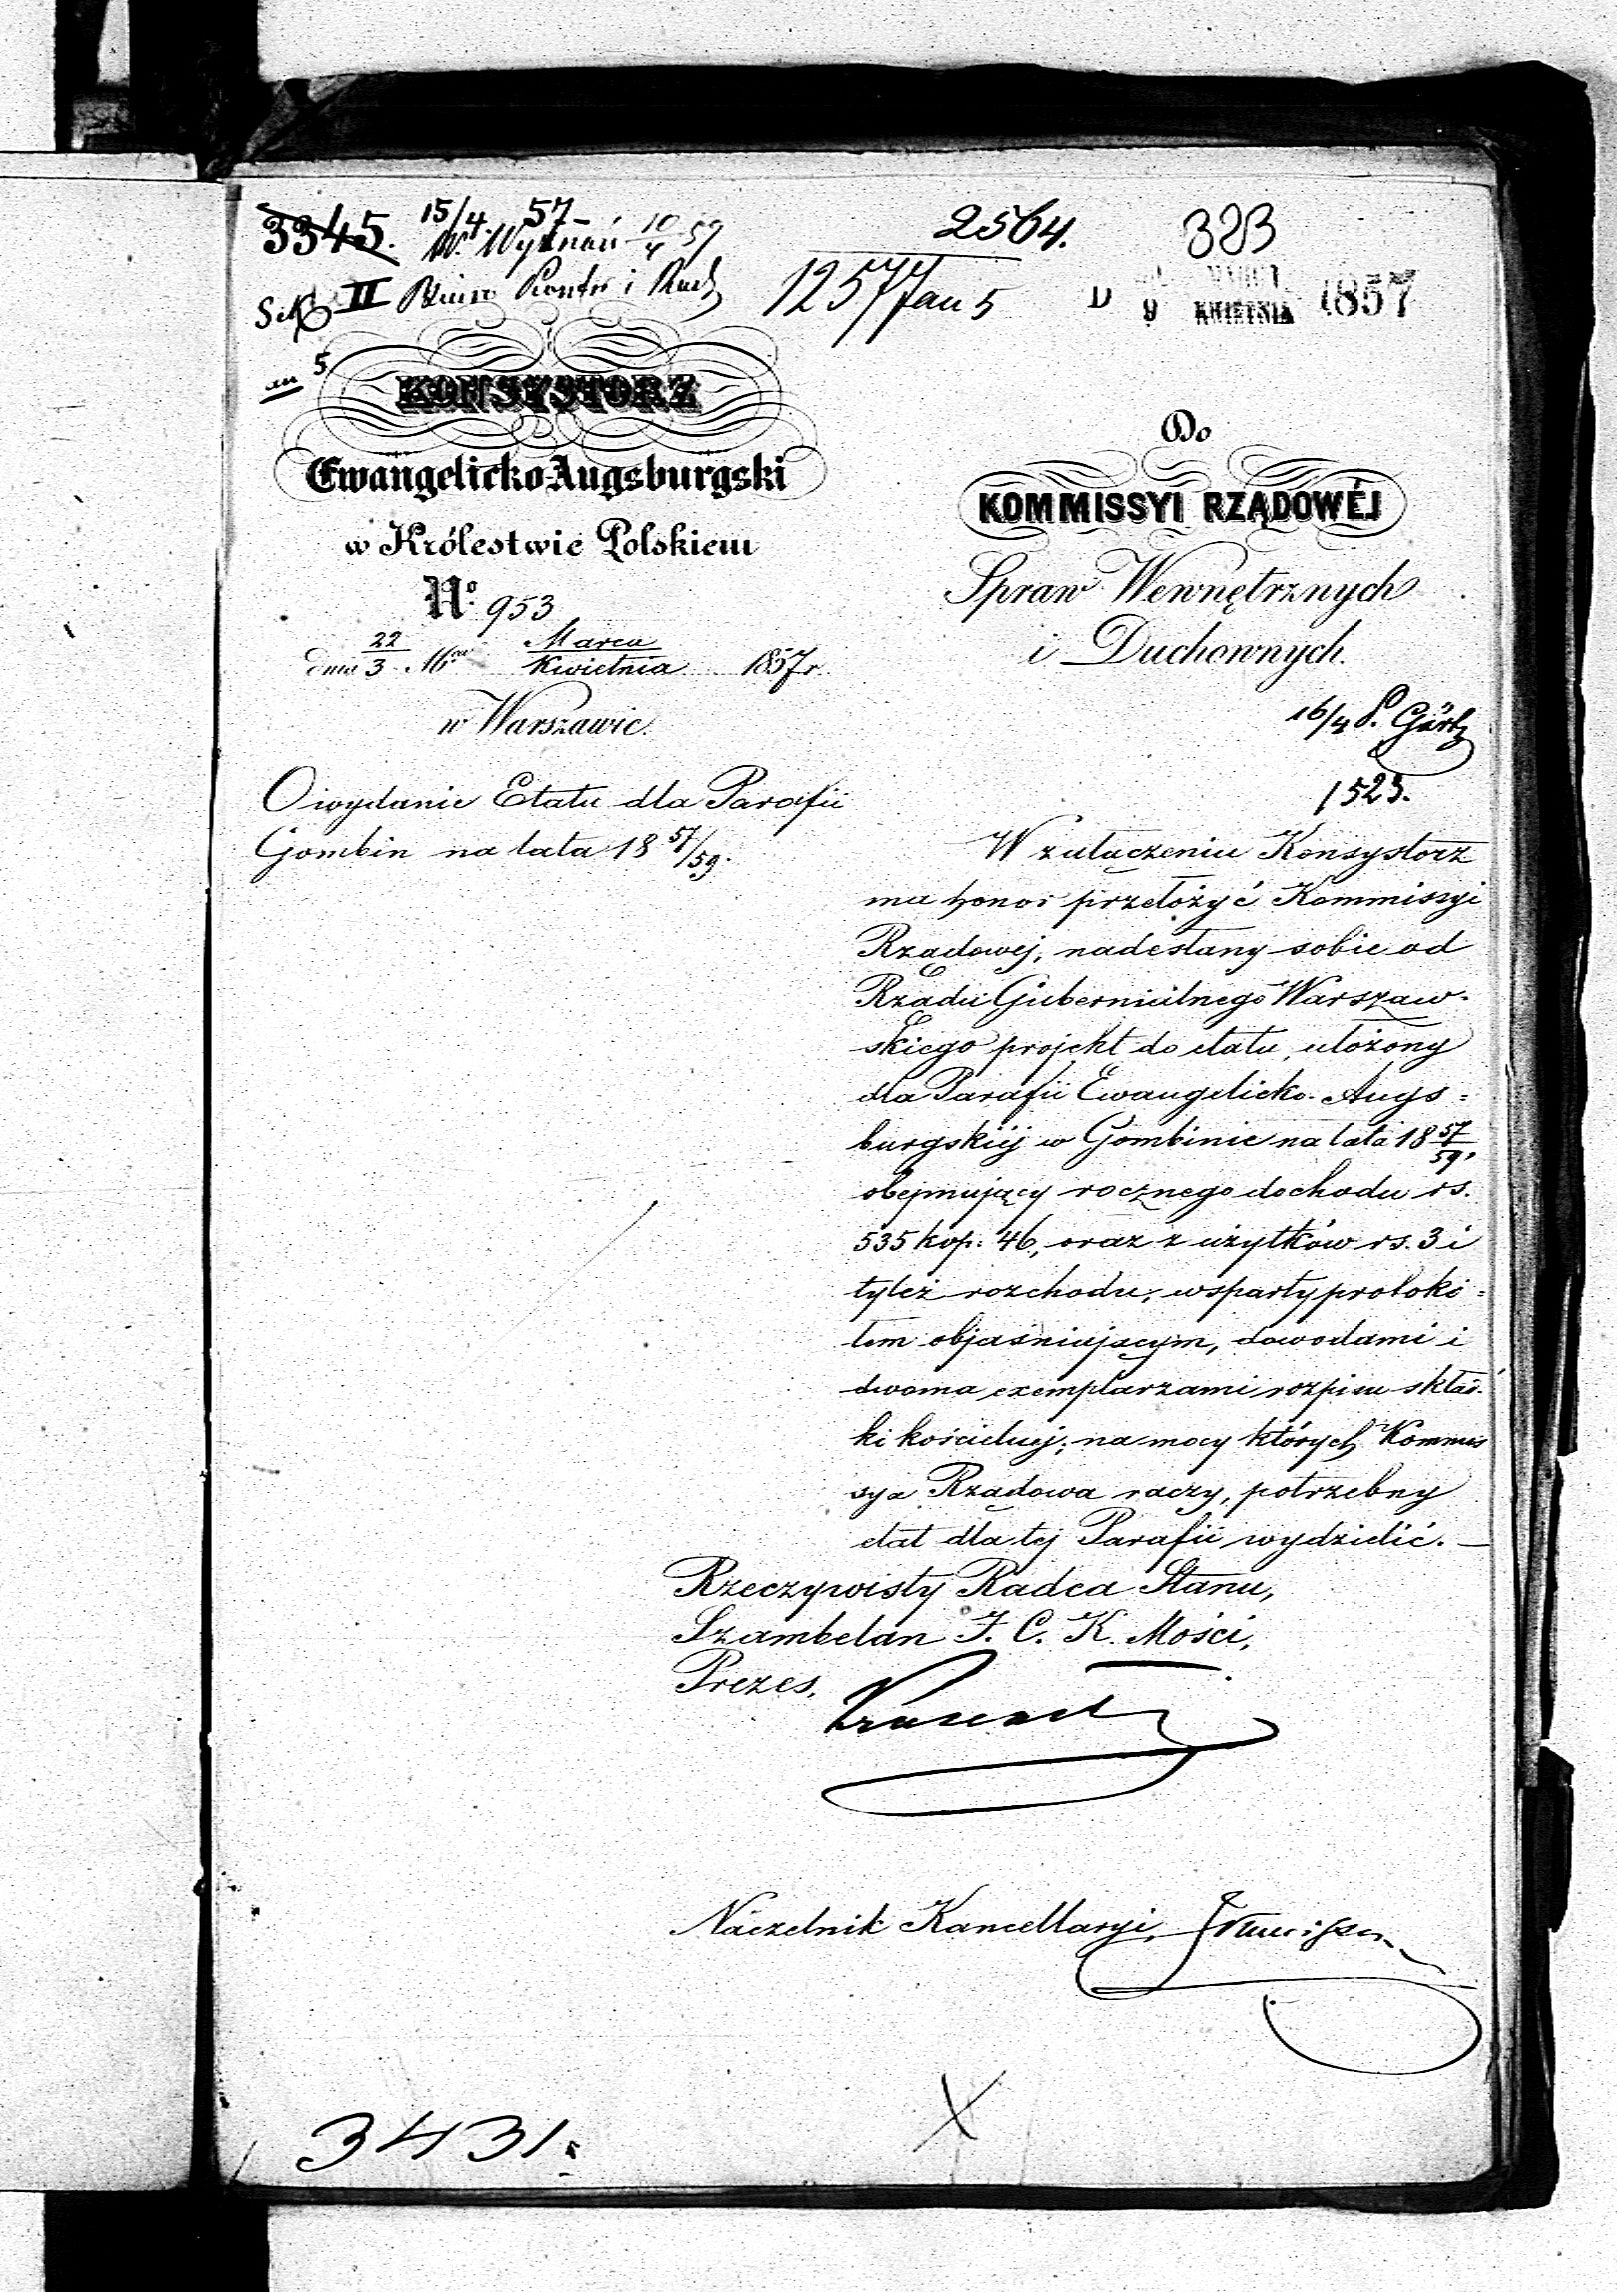 3345. 15/4 57
W. Wyznań 10/4 57
2564.
323
Sek. II Biuro Kontr i Rach
12577/an 5
D 9 MARCA KWIETNIA 1857
an 5
KONSYSTORZ
Ewangelicko-Augsburgski
w Królestwie Polskiem
No. 953
dnia 22/3 Mca Marca/Kwietnia 1857 r.
w Warszawie.
O wydanie Etatu dla Parafii
Gombin na lata 18 57/59.
Do
KOMMISSYI RZĄDOWÉJ
Spraw Wewnętrznych
i Duchownych.
16/4 P. Görtz
1523.
W załączeniu Konsystorz
ma honor przełożyć Kommissyi
Rządowej, nadesłany sobie od
Rządu Gubernialnego Warszaw-
skiego projekt do etatu, ułożony
dla Parafii Ewangelicko-Augs=
burgskiéj w Gombinie na lata 18 57/59,
obejmujący rocznego dochodu rs.
535 kop: 46, oraz z użytków rs. 3 i
tyleż rozchodu, wsparty protokó=
łem objaśniającym, dowodami i
dwoma exemplarzami rozpisu skład-
ki kościelnej; na mocy których Kommis
sya Rządowa raczy, potrzebny
etat dla tej Parafii wydzielić. —
Rzeczywisty Radca Stanu,
Szambelan J. C. K. Mości,
Prezes,
Naczelnik Kancellaryi,
3431.